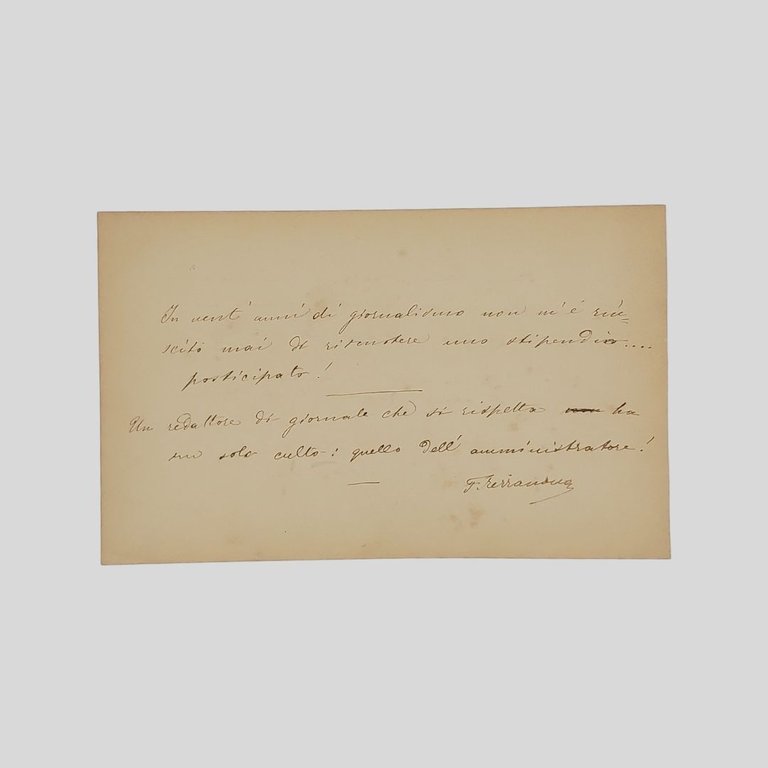 In vent'anni di giornalismo non m'è riu=
scito mai di riscuotere uno stipendio....
posticipato!
Un redattore di giornale che si rispetta non ha
un solo culto: quello dell'amministratore!